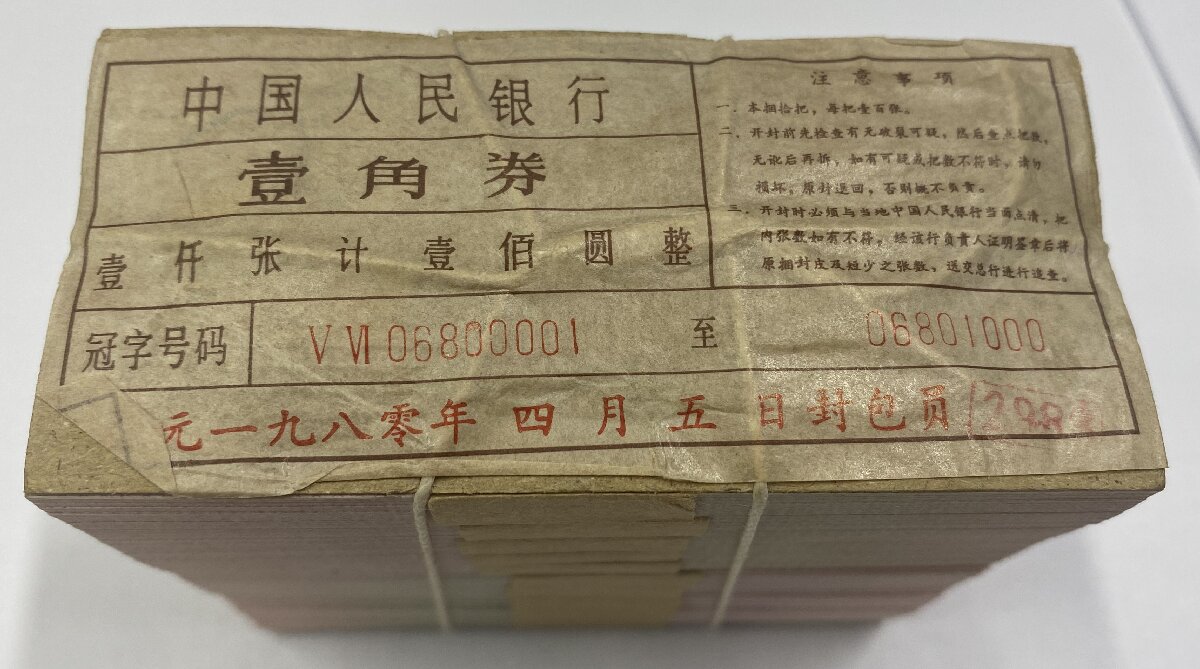 中国人民银行
壹角券
壹仟张计壹佰圆整
注意事项
一、本捆拾把，每把壹百张。
二、开封前先检查有无破裂可疑，然后查点把数，
无讹后再拆，如有可疑或把数不符时，请勿
损坏，原封退回，否则概不负责。
三、开封时必须与当地中国人民银行当面点清，把
内张数如有不符，经该行负责人证明签章后将
原捆封皮及短少之张数，送交总行进行追查。
冠字号码 V VI 06800001 至 06801000
元一九八零年 四月五日封包员